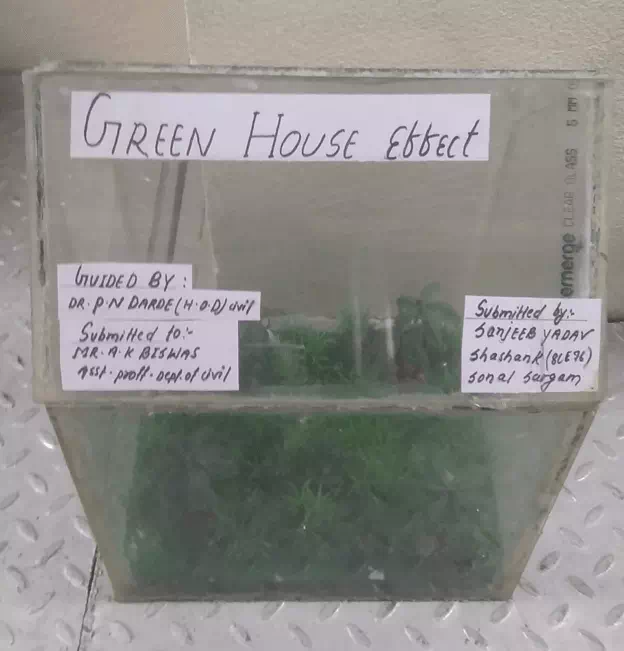 GREEN HOUSE Effect
GUIDED BY:
DR. P. N DARDE (H.O.D) civil
Submitted to:-
MR. A. K BISWAS
Asst. proff. Dept. of civil
Submitted by:-
SanJEEB YADAV
Shashank (8LE76)
Sonal Sargam
emerge CLEAR GLASS 5 MM